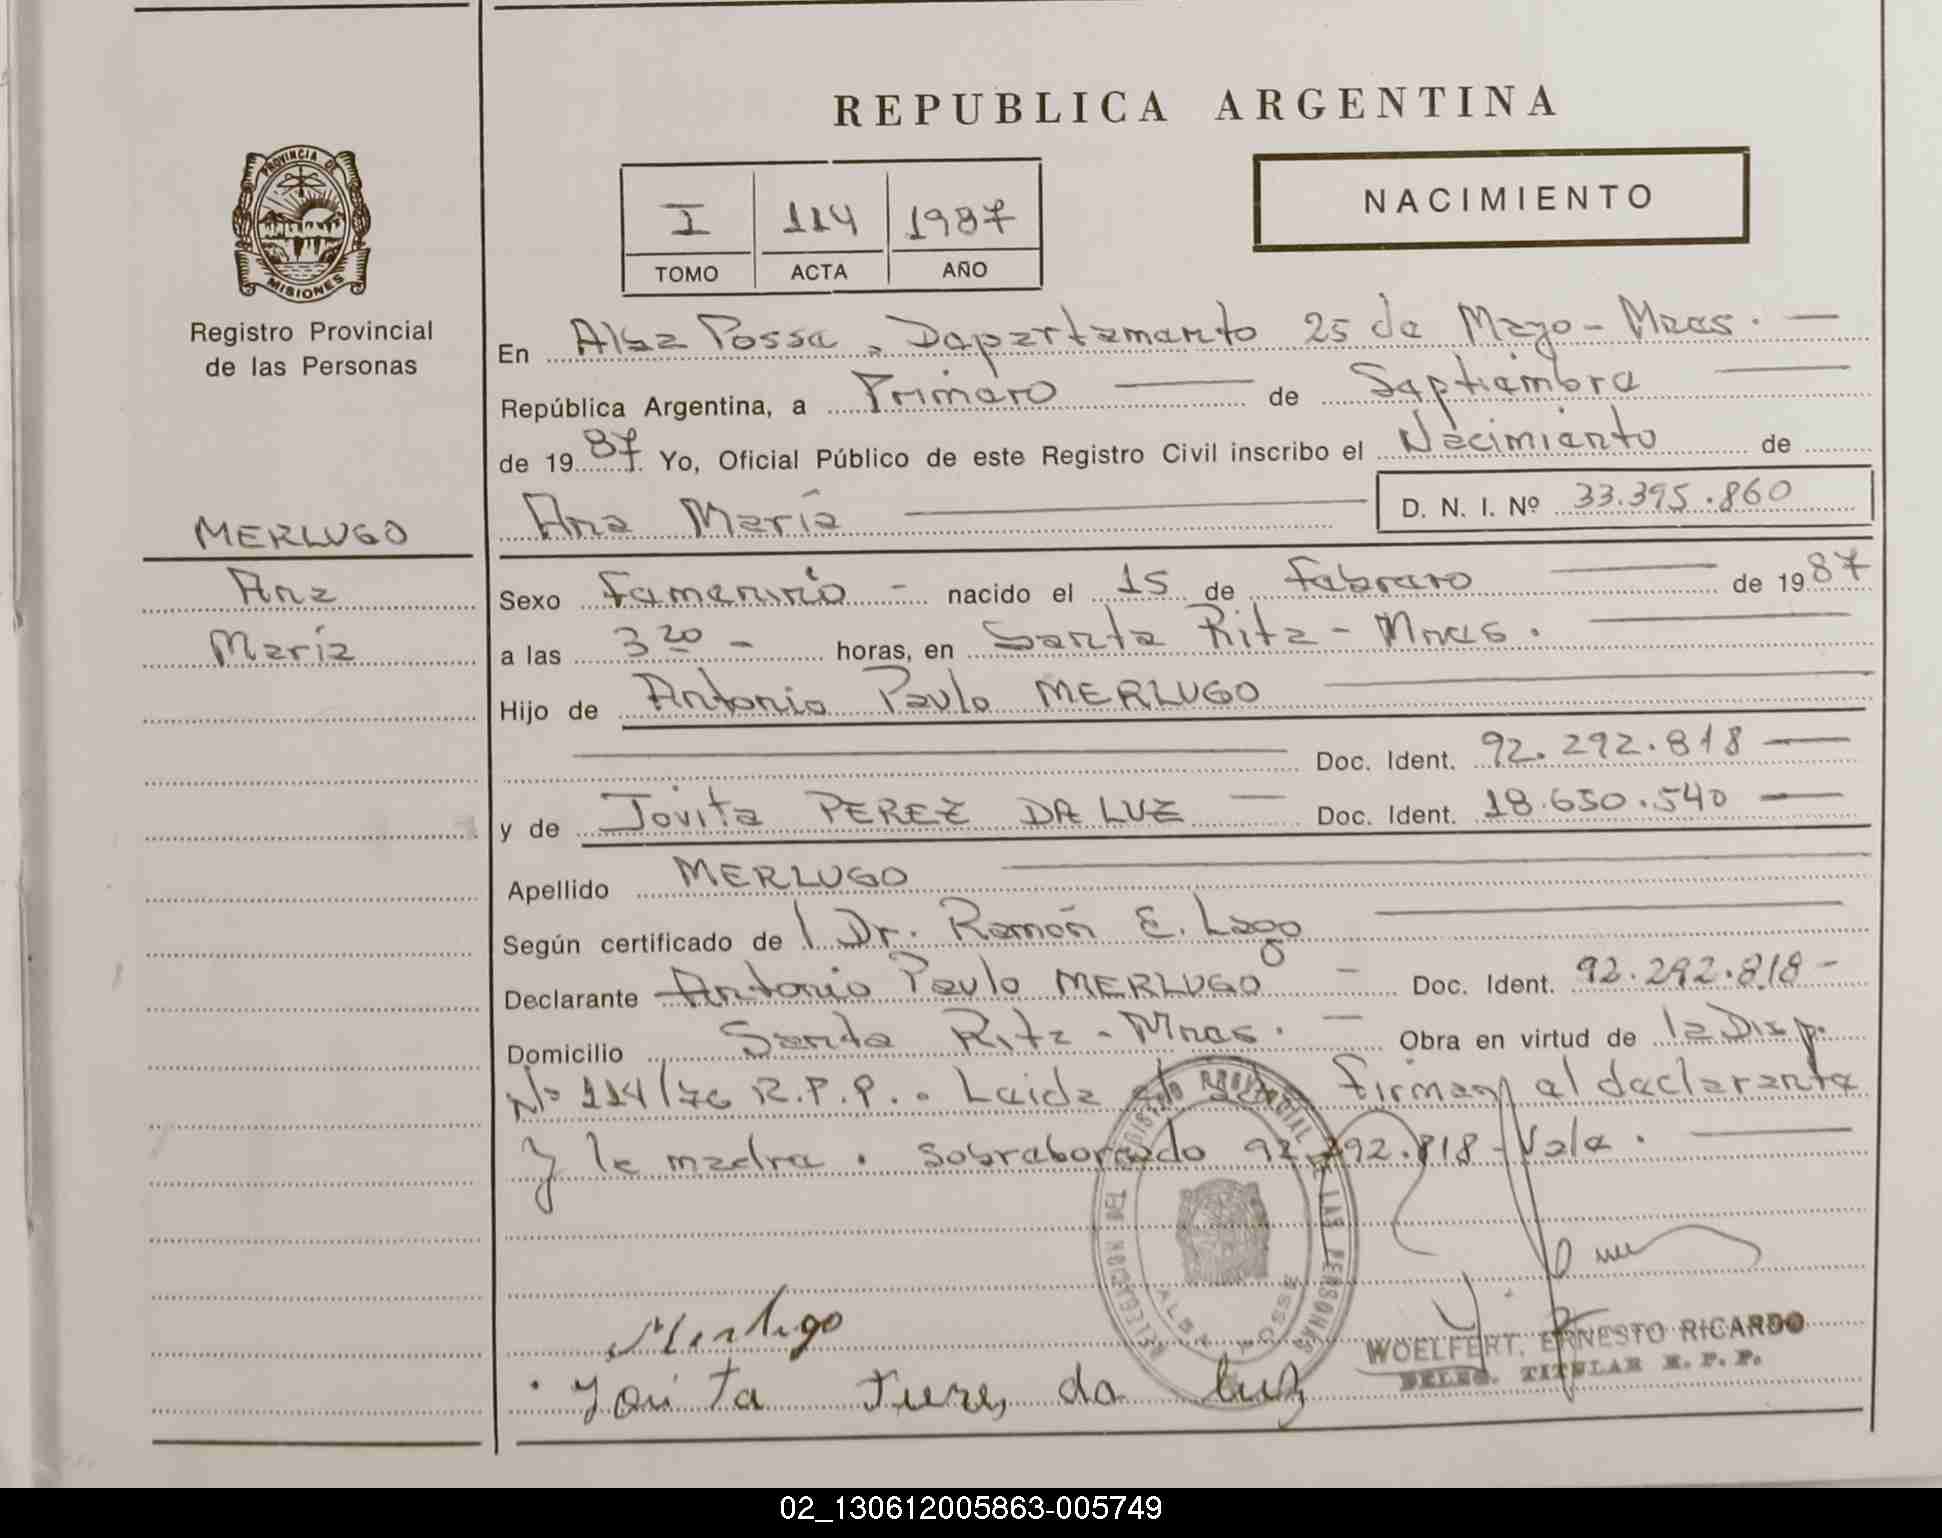 REPUBLICA ARGENTINA
PROVINCIA DE MISIONES
Registro Provincial
de las Personas
I 114 1987
TOMO ACTA AÑO
NACIMIENTO
En Alba Posse, Departamento 25 de Mayo - Mnes. —
República Argentina, a Primero — de Septiembre —
de 1987. Yo, Oficial Público de este Registro Civil inscribo el Nacimiento de
Ana María — D. N. I. Nº 33.395.860
MERLUGO
Ana
María
Sexo Femenino - nacido el 15 de Febrero — de 1987
a las 3 20 - horas, en Santa Rita - Mnes. —
Hijo de Antonio Paulo MERLUGO —
— Doc. Ident. 92.292.818 —
y de Jovita PEREZ DA LUZ — Doc. Ident. 18.650.540 —
Apellido MERLUGO —
Según certificado de Dr. Ramón E. Lago —
Declarante Antonio Paulo MERLUGO - Doc. Ident. 92.292.818 -
Domicilio Santa Rita - Mnes. - Obra en virtud de la Disp.
Nº 114/76 R.P.P.. Leida el acta firman el declarante
y la madre. Sobreborrado 92.292.818 - Vale. —
REGISTRO PROVINCIAL DE LAS PERSONAS
DELEGACION
ALBA POSSE
Merlugo
Jovita da luz
WOELFERT, ERNESTO RICARDO
DELEG. TITULAR R. P. P.
02_130612005863-005749